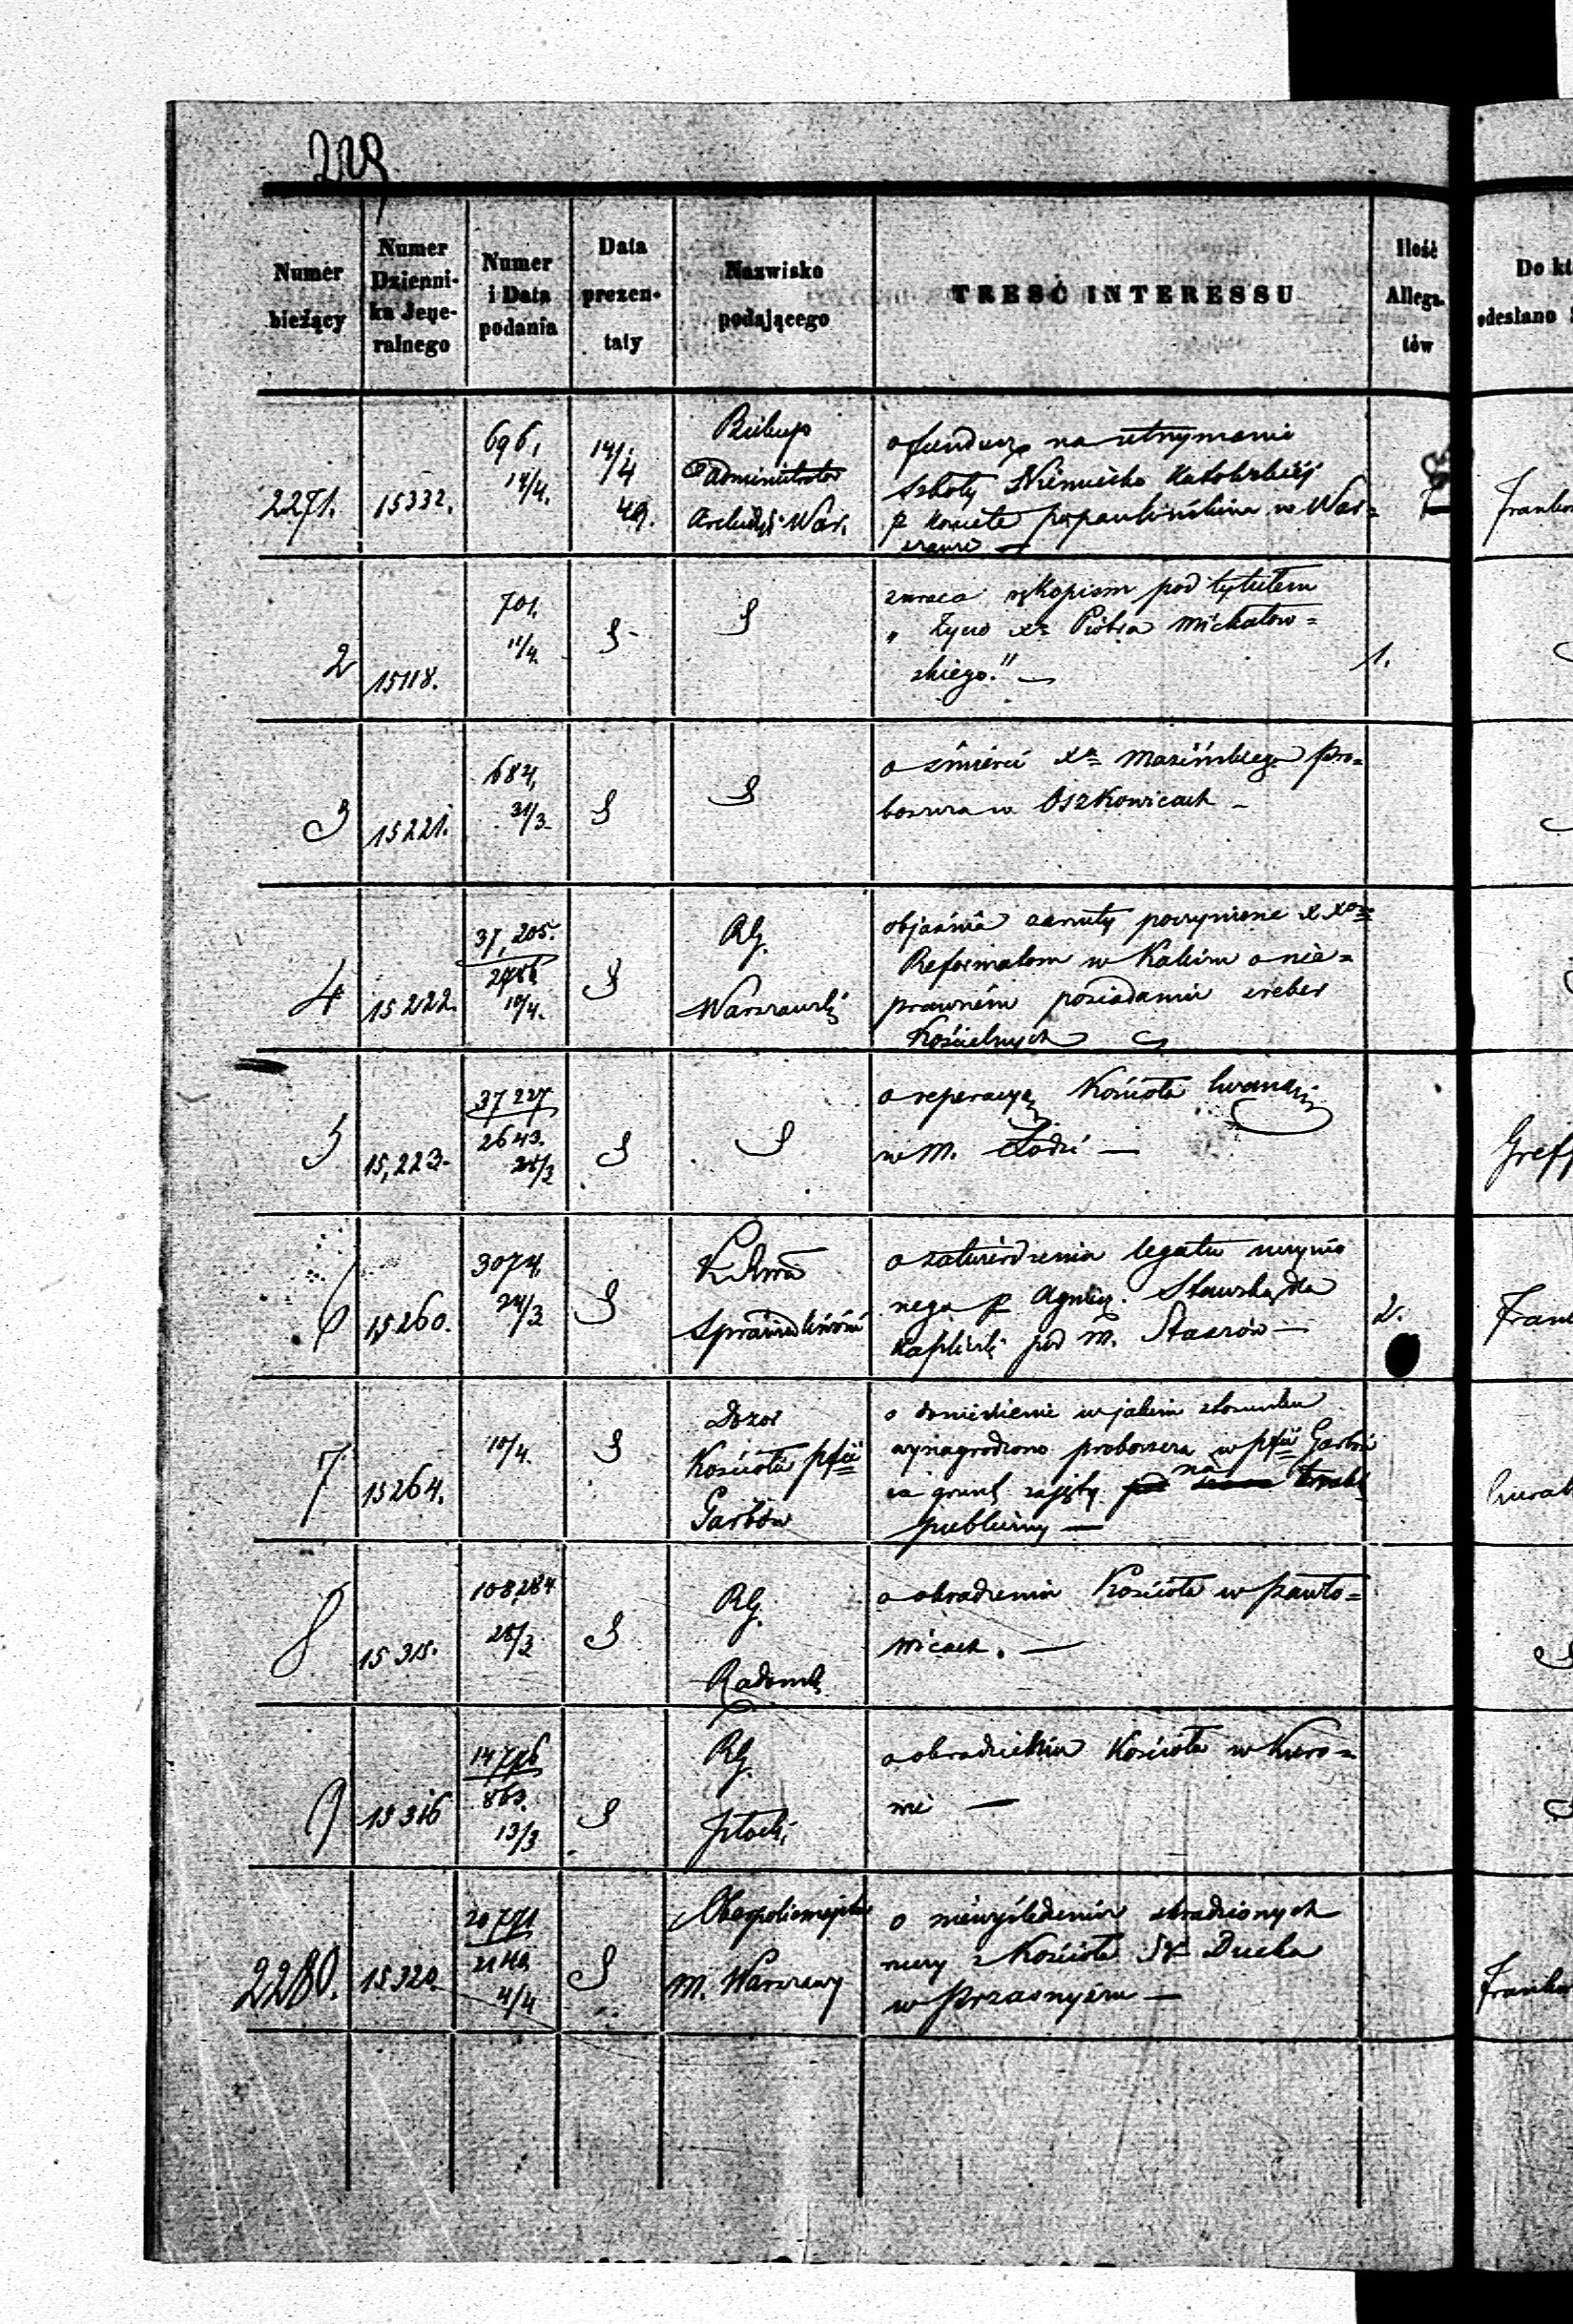 229
Numer bieżący
Numer Dzienni-
ka Jene-
ralnego
Numer i Data podania
Data prezen-
taty
Nazwisko podającego
TREŚĆ INTERESSU
Ilość Allega-
tów
Do kt
odesłano
2271. 15332. 696, 14/4. 14/4 49.
Biskup
Administrator
Archidy. War.
o fundusz na utrzymanie
szkoły Niemiecko Katolickiéj
p kościele popaulińskim w War=
szawie —
2 15118. 701. 11/4.
zwraca rękopism pod tytułem
„ Życie xa Piotra Michałow=
skiego." —
1.
3 15221. 684, 31/3.
o śmierci xa Mazińskiego pro=
boszcza w Oszkowicach —
4 15222. 37,205. 2786 10/4.
RG.
Warszawski
objaśnia zarzuty poczynione x xom
Reformatom w Kaliszu o nie=
prawném posiadaniu sreber
Kościelnych
5 15,223. 37227 2643. 28/3
o reperacyę Kościoła Ewang
w m. Łodzi —
Greff
6 15260. 3074. 24/3
K Rwa
Sprawiedliwości
o zatwierdzenie legatu uczynio
nego p Agnieg. Sławską dla
kaplicy pod m. Staszów —
2.
7 15264. 10/4.
Dozór
Kościoła pfii
Garbów
o doniesienie w jakim stosunku
wynagrodzono proboszcza w pfii Garbów
za grunt zajęty na trakt
publiczny —
8 15315. 108,284 28/3
RG.
Radomski
o okradzeniu Kościoła w Pawło=
wicach. —
9 15316 14776 863. 13/3
RG.
Płocki
o okradzeniu Kościoła w Kuro=
wie —
2280. 15320. 20771 4/4
Oberpolicmajster
m. Warszawy
o niewyśledzeniu skradzionych
rzeczy z Kościoła Sgo Ducha
w Przasnyszu —